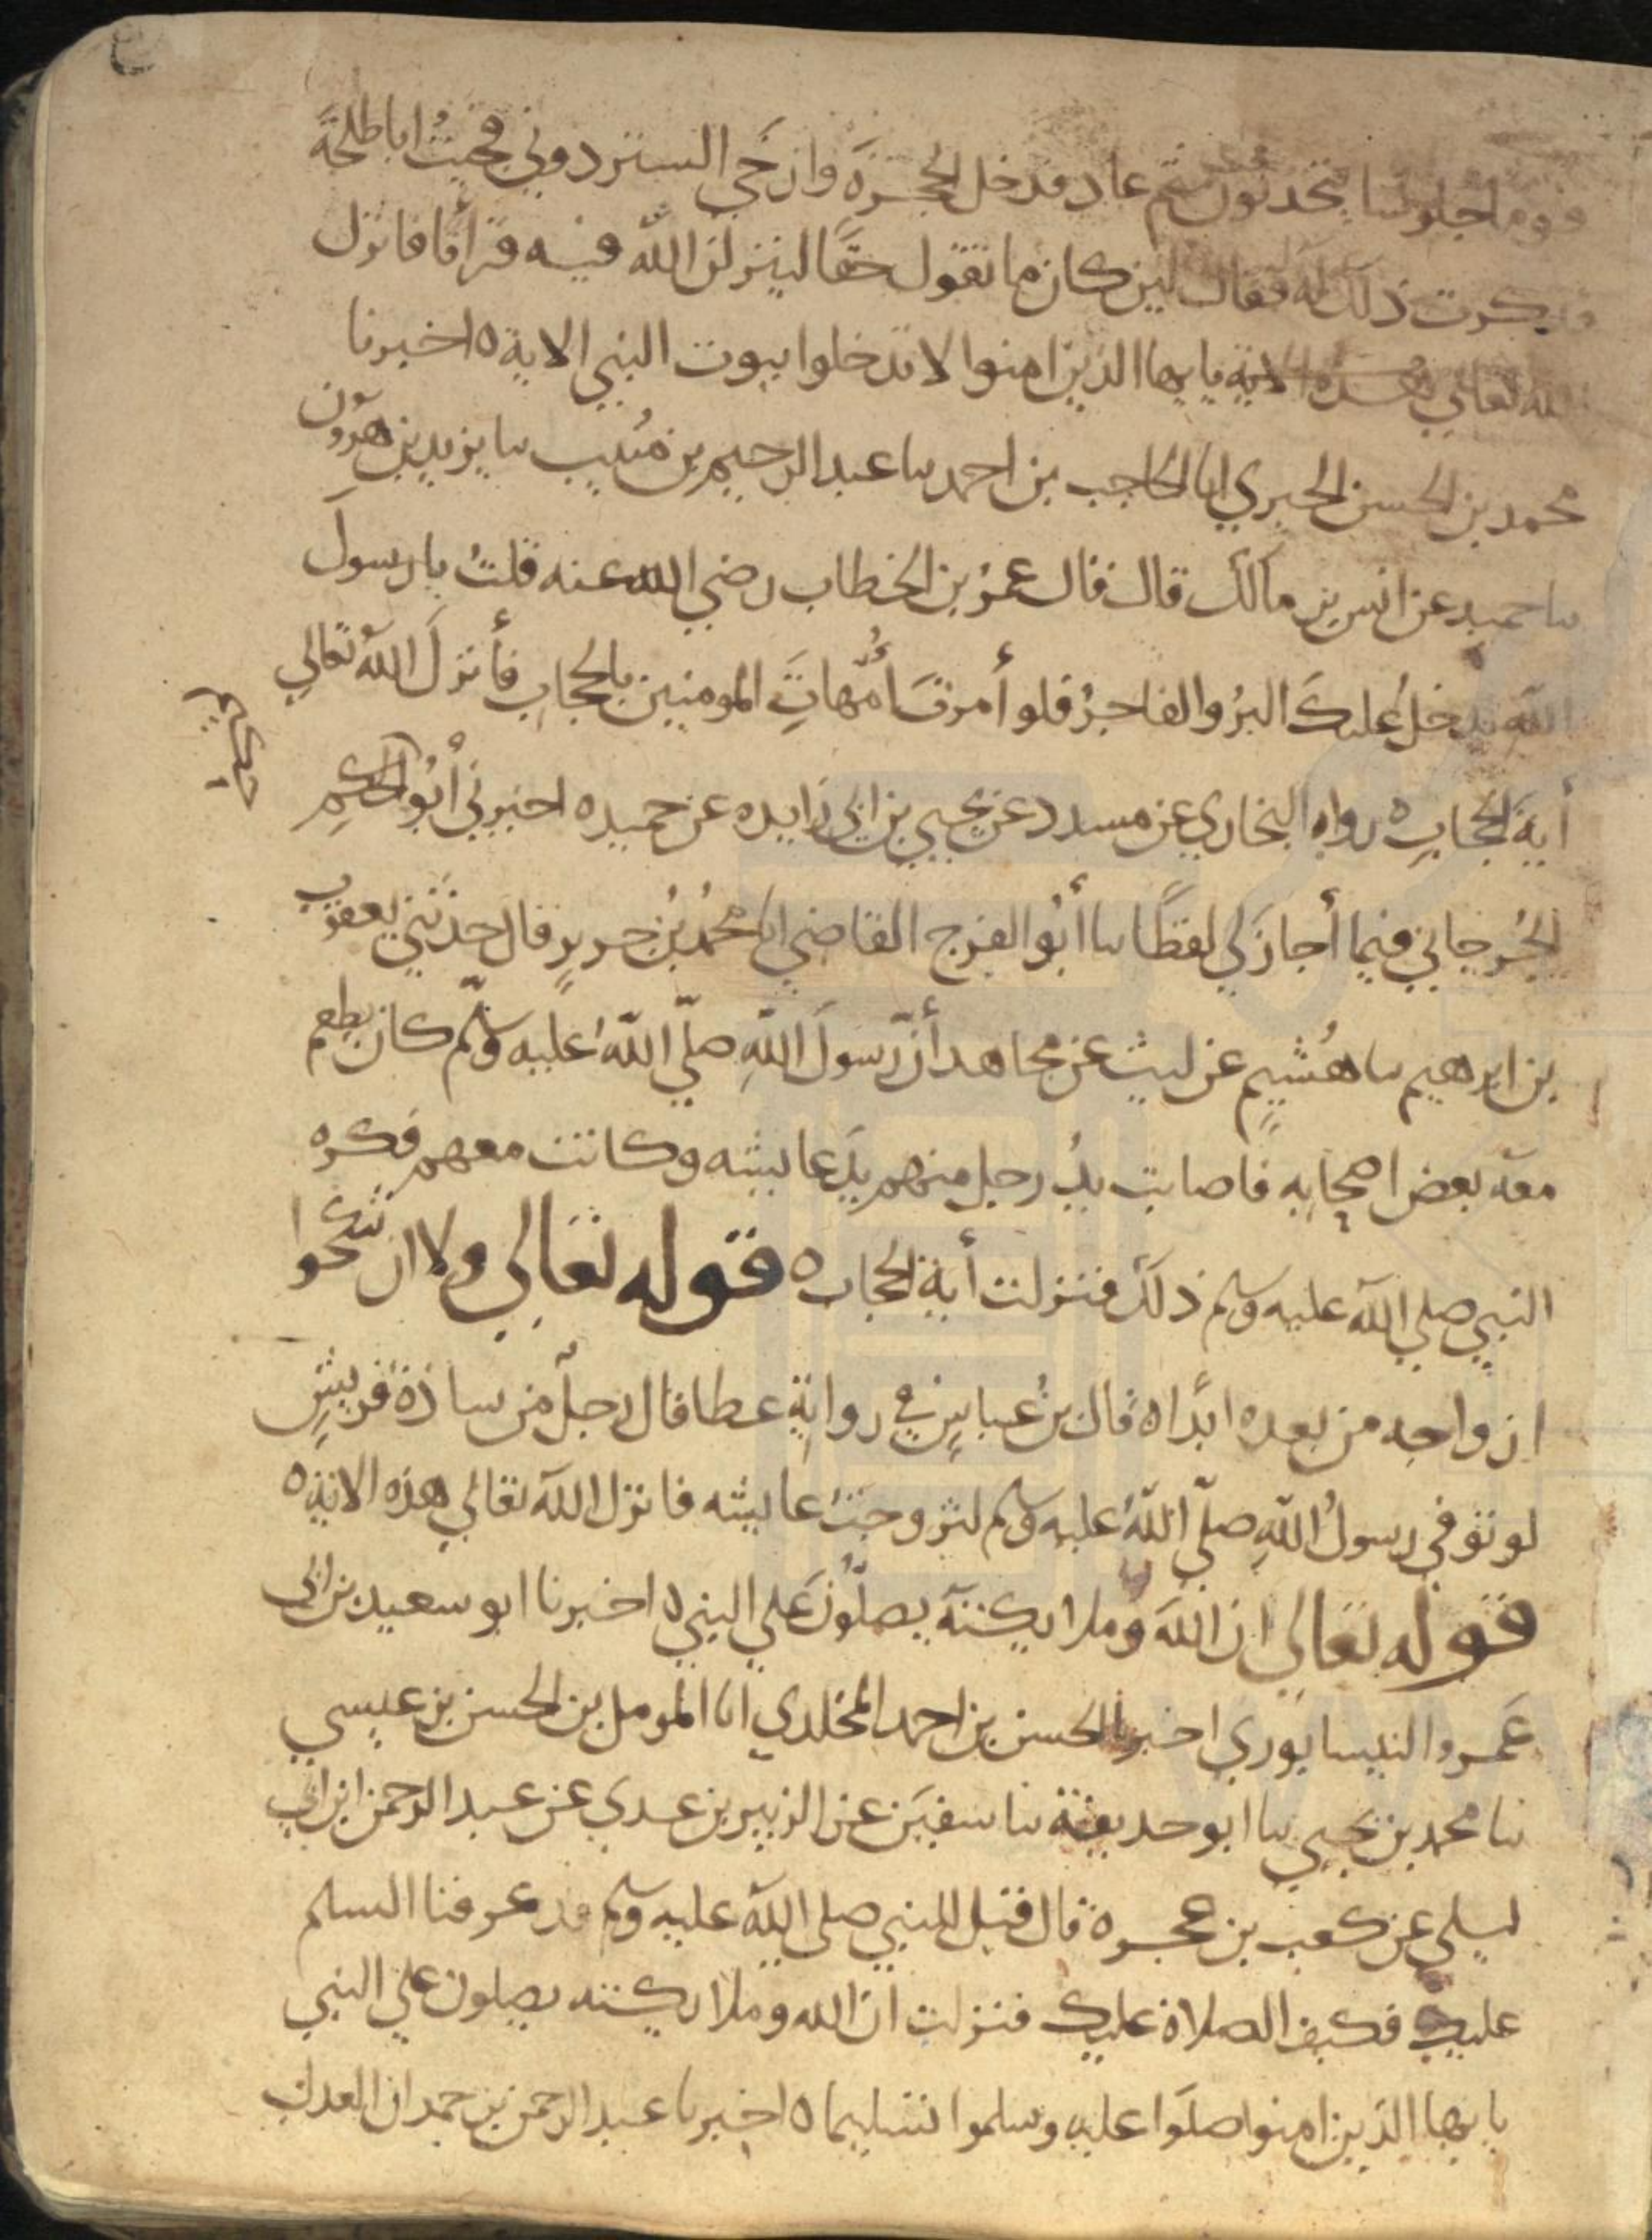 قوما جلوسا يتحدثون ثم عاد فدخل الحجرة وارخي الستر دوني فجيت اباطلحة
فذكرت ذلك له فقال لين كان ما تقول حقا لينزلن الله فيه قرانا فانزل
الله تعالي هذه الاية يايها الذين امنوا لا تدخلوا بيوت النبي الاية ه اخبرنا
محمد بن الحسن الحيري انا الحاجب بن احمد سا عبد الرحيم بن منيب سا يزيد بن هرون
سا حميد عن انس بن مالك قال قال عمر بن الخطاب رضي الله عنه قلت يا رسول
الله يدخل عليك البر والفاجر فلو أمرت أمهات المومنين بالحجاب فأنزل الله تعالي
أية الحجاب ه رواه البخاري عن مسدد عن يحيي بن ابي زايده عن حميد ه اخبرني أبو الحكم
الجرجاني فيما أجاز لي لفظا سا أبو الفرج القاضي انا محمد بن جرير قال حدثني يعقوب
بن ابرهيم سا هشيم عن ليث عن مجاهد أن رسول الله صلي الله عليه وسلم كان يطعم
معه بعض اصحابه فاصابت يد رجل منهم يد عايشه وكانت معهم فكره
النبي صلي الله عليه وسلم ذلك فنزلت أية الحجاب ه قوله تعالي ولا ان تنكحوا
ازواجه من بعده ابدا ه قال بن عباس في رواية عطا قال رجل من سادة قريش
لو توفي رسول الله صلي الله عليه وسلم لتزوجت عايشه فانزل الله تعالي هذه الاية ه
قوله تعالي ان الله وملايكته يصلون علي النبي ه اخبرنا ابو سعيد بن ابي
عمرو النيسابوري اخبرنا الحسن بن احمد المخلدي انا المومل بن الحسن بن عيسي
نا محمد بن يحيي سا ابو حذيفة سا سفين عن الزبير بن عدي عن عبد الرحمن ابن ابي
ليلي عن كعب بن عجرة قال قيل للنبي صلي الله عليه وسلم قد عرفنا السلم
عليك فكيف الصلاة عليك فنزلت ان الله وملايكته يصلون علي النبي
يايها الذين امنوا صلوا عليه وسلموا تسليما ه اخبرنا عبد الرحمن بن حمدان العدل